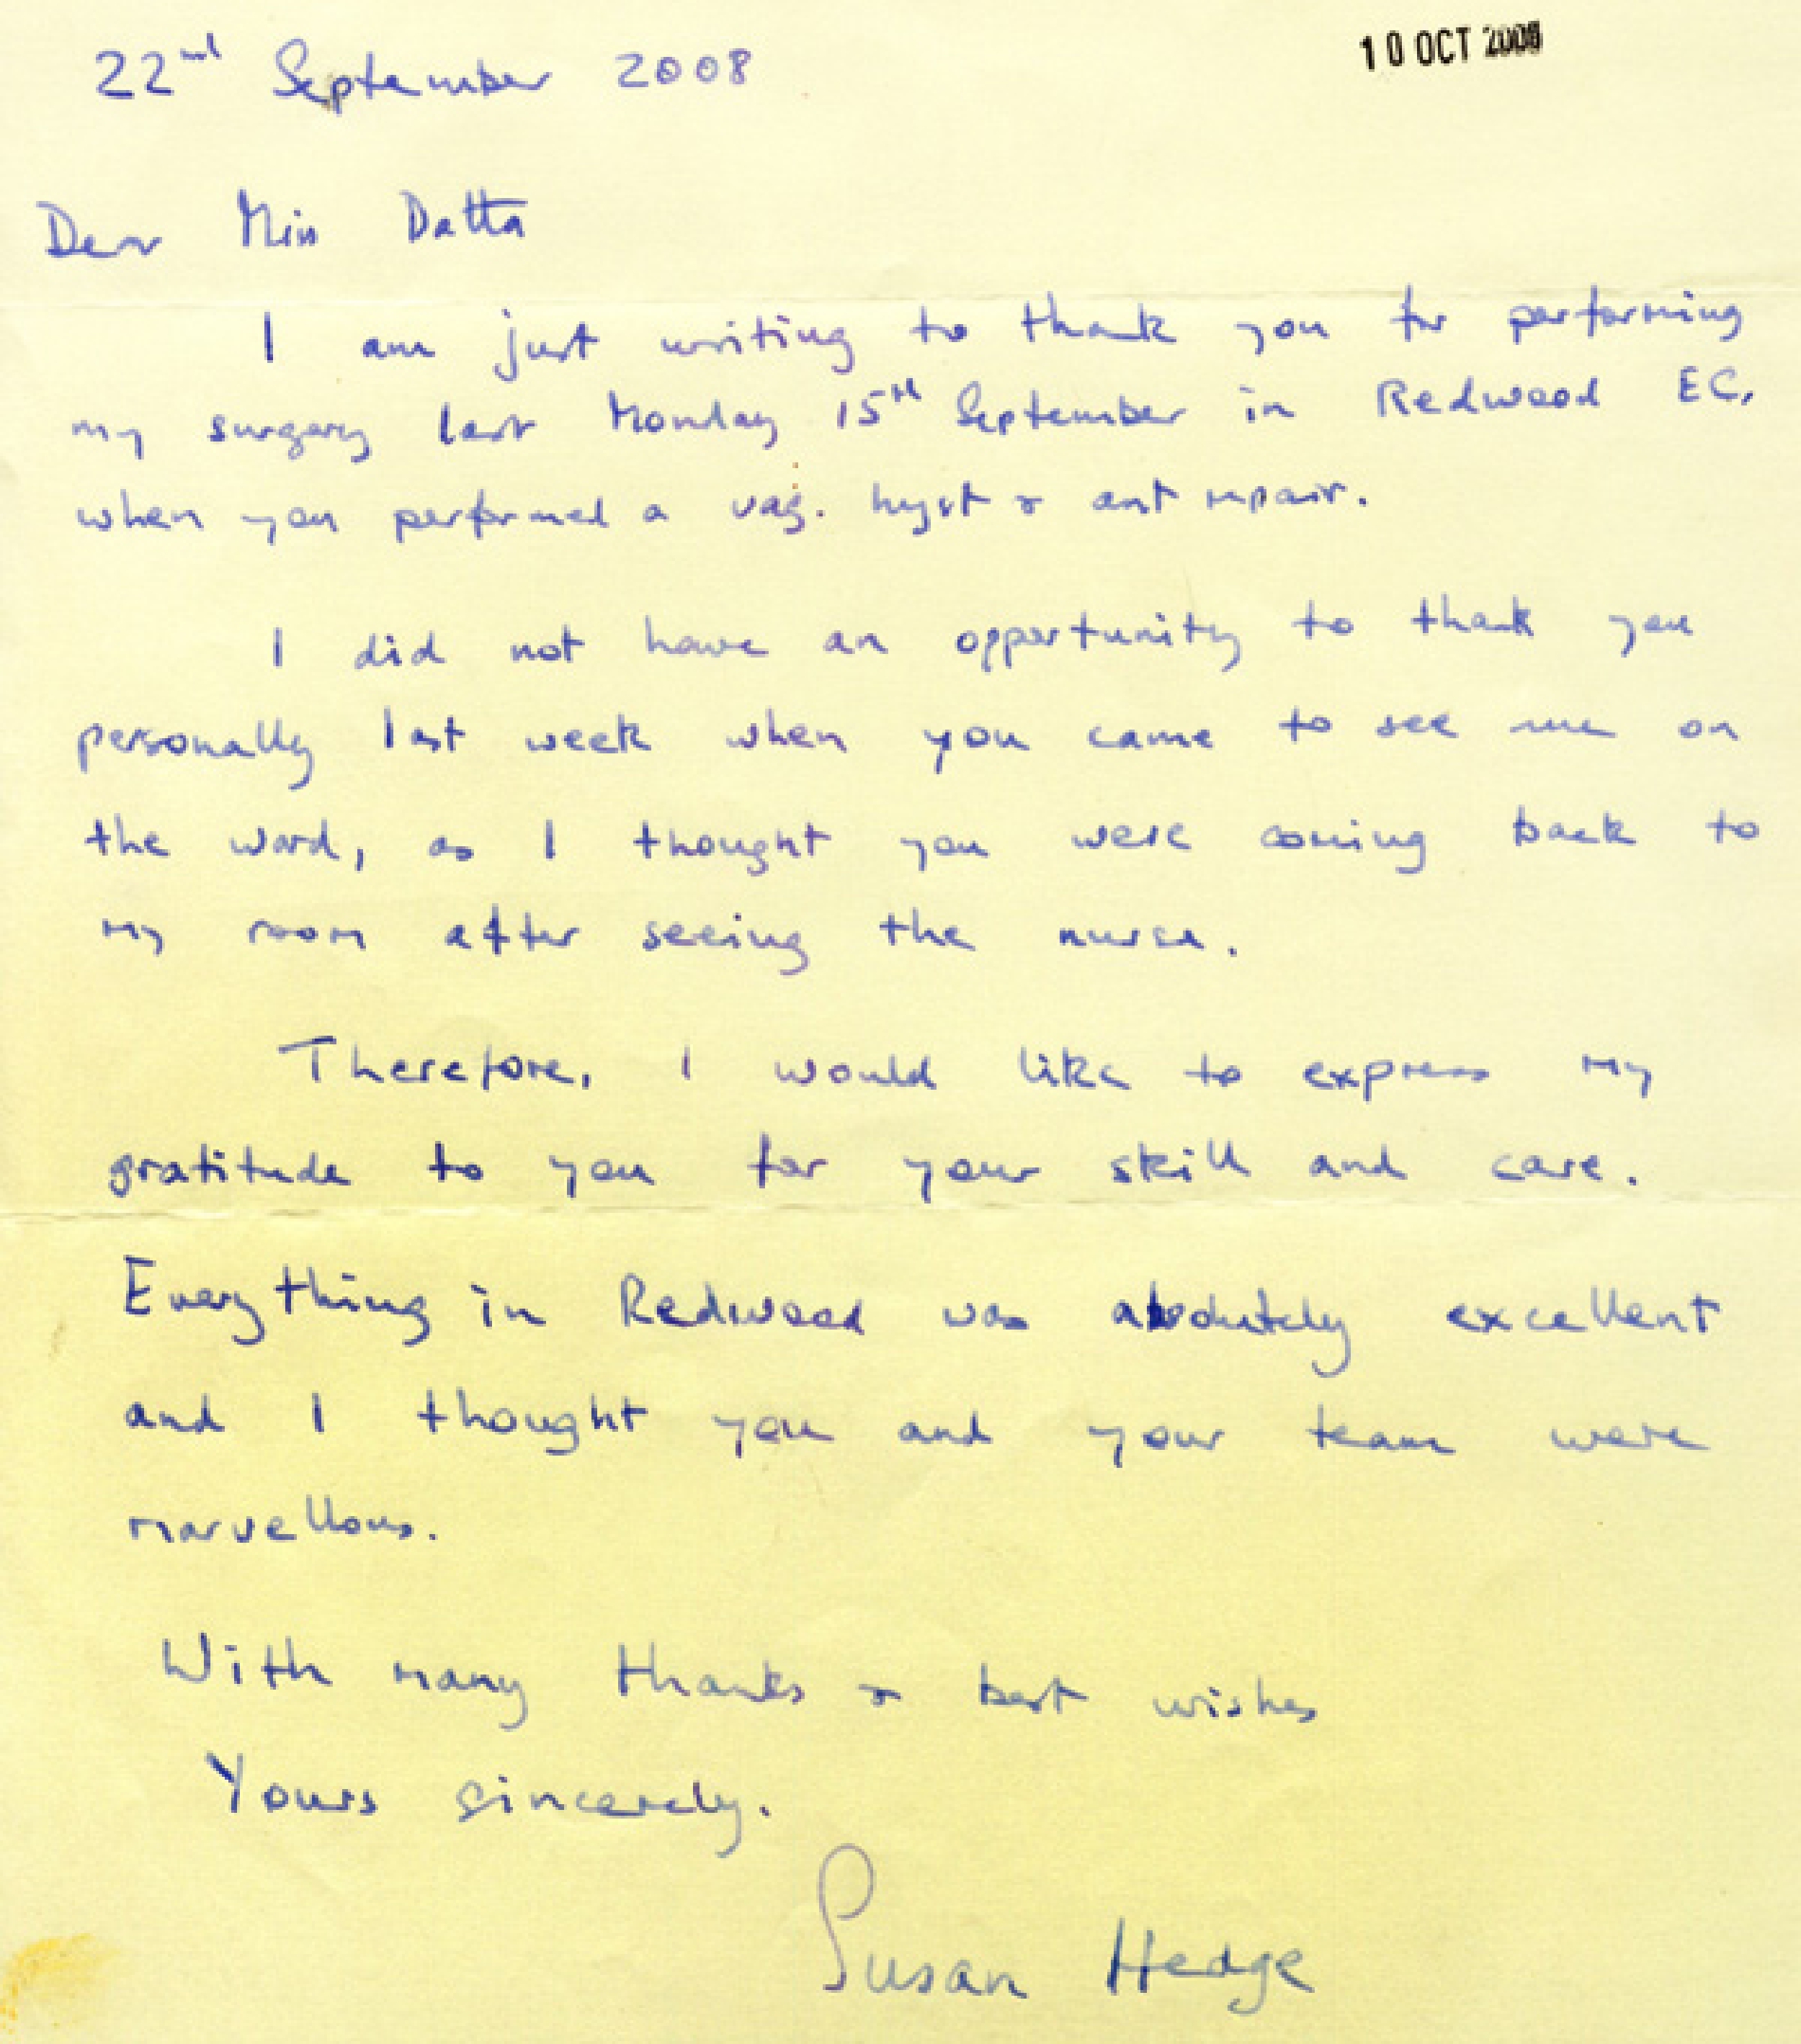 22nd September 2008
10 OCT 2008
Dear Miss Datta
I am just writing to thank you for performing
my surgery last Monday 15th September in Redwood EC,
when you performed a vag. hyst & ant repair.
I did not have an opportunity to thank you
personally last week when you came to see me on
the ward, as I thought you were coming back to
my room after seeing the nurse.
Therefore, I would like to express my
gratitude to you for your skill and care.
Everything in Redwood was absolutely excellent
and I thought you and your team were
marvellous.
With many thanks & best wishes
Yours sincerely.
Susan Hedge